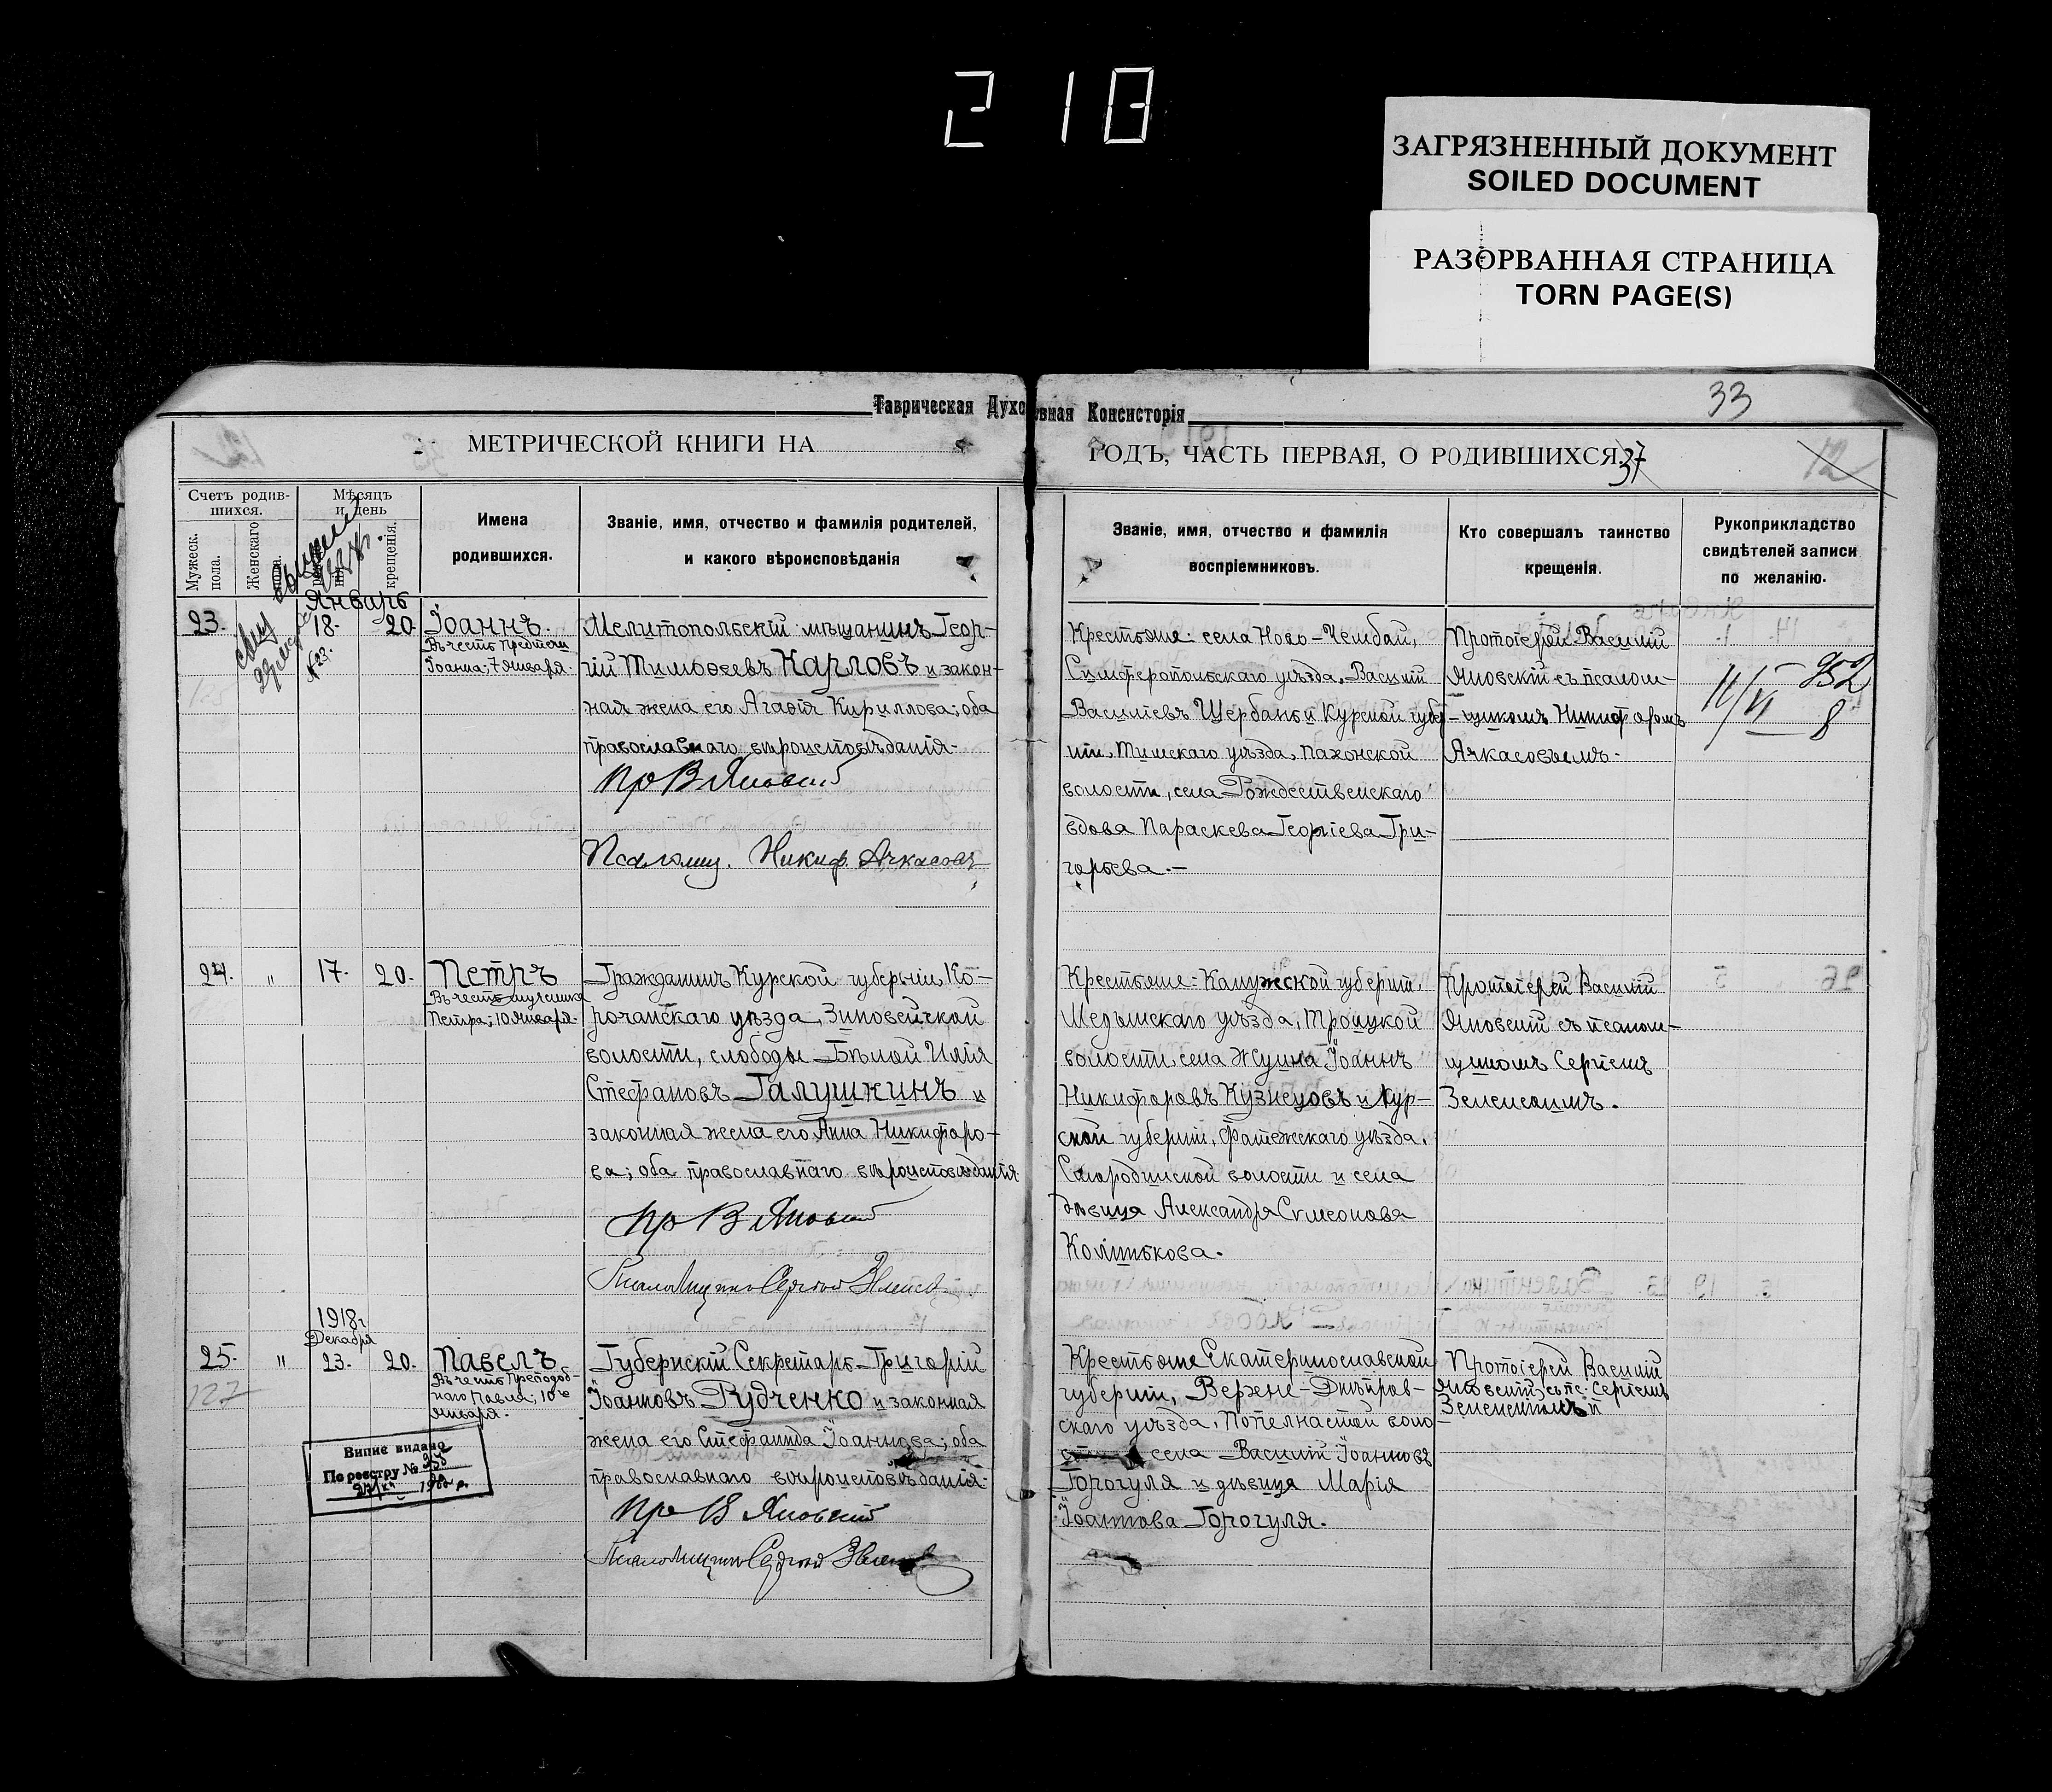 210
ЗАГРЯЗНЕННЫЙ ДОКУМЕНТ
SOILED DOCUMENT
РАЗОРВАННАЯ СТРАНИЦА
TORN PAGE(S)
Таврическая Духовная Консисторія
33
МЕТРИЧЕСКОЙ КНИГИ НА
ГОДЪ, ЧАСТЬ ПЕРВАЯ, О РОДИВШИХСЯ.
37
12
Счетъ родив-
шихся.
Мужеск. пола.
Женскаго пола.
Мѣсяцъ
и день
крещенія.
Имена
родившихся.
Званіе, имя, отчество и фамилія родителей,
и какого вѣроисповѣданія
Званіе, имя, отчество и фамилія
воспріемниковъ.
Кто совершалъ таинство
крещенія.
Рукоприкладство
свидѣтелей записи
по желанію.
Январь
23. 18. 20. Іоаннъ.
Въ честь Предтечи
Іоанна; 7 января.
Мелитопольскій мѣщанинъ Геор-
гій Тимоѳеевъ Карловъ и закон-
ная жена его Агаѳія Кириллова; оба
православнаго вѣроисповѣданія.
Пр В Яновский
Псаломщ. Никиф. Ачкасовъ
Крестьяне: села Ново-
Симферопольскаго уѣзда, Василій
Васильевъ Щербань и Курской губер-
ніи, Тимскаго уѣзда, Пахонской
волости, села Рождественскаго
вдова Параскева Георгіева Гри-
горьева.-
Протоіерей Василій
Яновскій съ псалом-
щикомъ Никифоромъ
Ачкасовымъ.
952
24. " 17. 20. Петръ
Въ честь мученика
Петра; 10 Января.
Гражданинъ Курской губерніи, Ко-
рочанскаго уѣзда, Зиновейской
волости, слободы Бѣлой Илія
Стефановъ Галушкинъ и
законная жена его Анна Никифоро-
ва; оба православнаго вѣроисповѣданія.
Пр В Яновский
Крестьяне: Калужской губерніи,
Медынскаго уѣзда, Троицкой
волости, села Жуина Іоаннъ
Никифоровъ Кузнецовъ и Кур-
ской губерніи, Фатежскаго уѣзда,
Смородинской волости и села
дѣвица Александра Симеонова
Протоіерей Василій
Яновскій съ псалом-
щикомъ Сергіемъ
1918 г.
Декабря
25. " 23. 20. Павелъ
127
Въ честь Преподоб-
наго Павла; 10-е
Января.
Губернскій Секретарь Григорій
Іоанновъ Рудченко и законная
жена его Стефанида Іоаннова; оба
православнаго вѣроисповѣданія.
Пр В Яновский
Крестьяне Екатеринославской
губерніи, Верхне-Днѣпров-
скаго уѣзда, Попелнастой воло-
села Василій Іоанновъ
Горогуля и дѣвица Марія
Іоаннова Горогуля.
Протоіерей Василій
Яновскій съ пс. Сергіемъ
Випис видано
По реєстру №